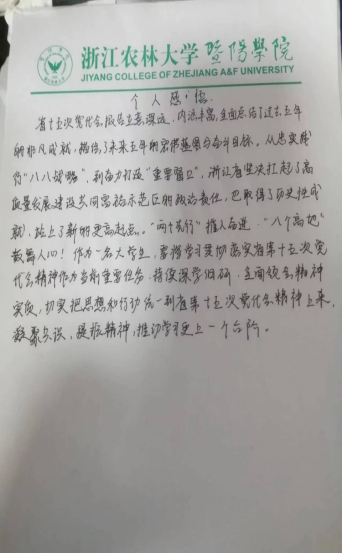 浙江农林大学暨陽學院
JIYANG COLLEGE OF ZHEJIANG A&F UNIVERSITY
个人感悟
省十五次党代会报告立意深远,内涵丰富,全面总结了过去五年
的非凡成就,描绘了未来五年的宏伟蓝图与奋斗目标。从忠实践
行“八八战略”,到奋力打造“重要窗口”,浙江省坚决扛起了高
质量发展建设共同富裕示范区的政治责任,已取得了历史性成
就,站上了新的更高起点。“两个先行”催人奋进,“八个高地”
鼓舞人心!作为一名大学生,要将学习贯彻落实省第十五次党
代会精神作为当前重要任务,持续深学细研,全面领会精神
实质,切实把思想和行动统一到省第十五次党代会精神上来,
凝聚共识,提振精神,推动学习更上一个台阶。